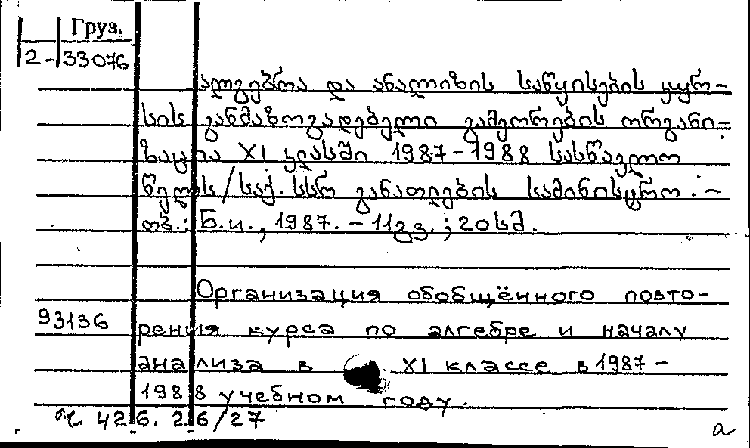 Груз.
2-33076
ალგებრისა და ანალიზის საწყისების კურ-
სის განმაზოგადებელი გამეორების ორგანი-
ზაცია XI კლასში 1987-1988 სასწავლო
წელს/საქ. სსრ განათლების სამინისტრო. -
თბ.: Б.и., 1987. - 11გვ.; 20სმ.
Организация обобщённого повто-
93136
рения курса по алгебре и началу
анализа в XI классе в 1987-
1988 учебном году.
42 б. 26/27
а